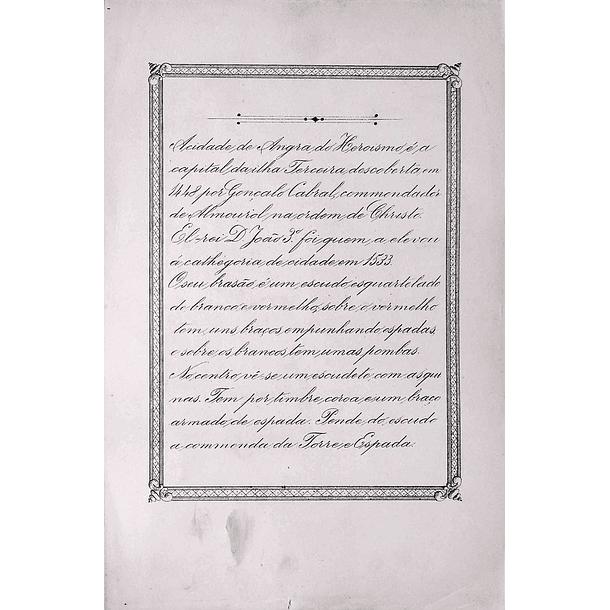 A cidade de Angra do Heroismo é a
capital da ilha Terceira descoberta em
1448 por Gonçalo Cabral, commendador
de Almourol na ordem de Christo.
El-rei D. João 3.º foi quem a elevou
á cathegoria de cidade em 1533.
O seu brasão é um escudo esquartelado
de branco e vermelho; sobre o vermelho
tem uns braços empunhando espadas
e sobre os brancos tem umas pombas.
No centro vê-se um escudete com as qui
nas. Tem por timbre, coroa e um braço
armado de espada. Pende do escudo
a commenda da Torre e Espada.